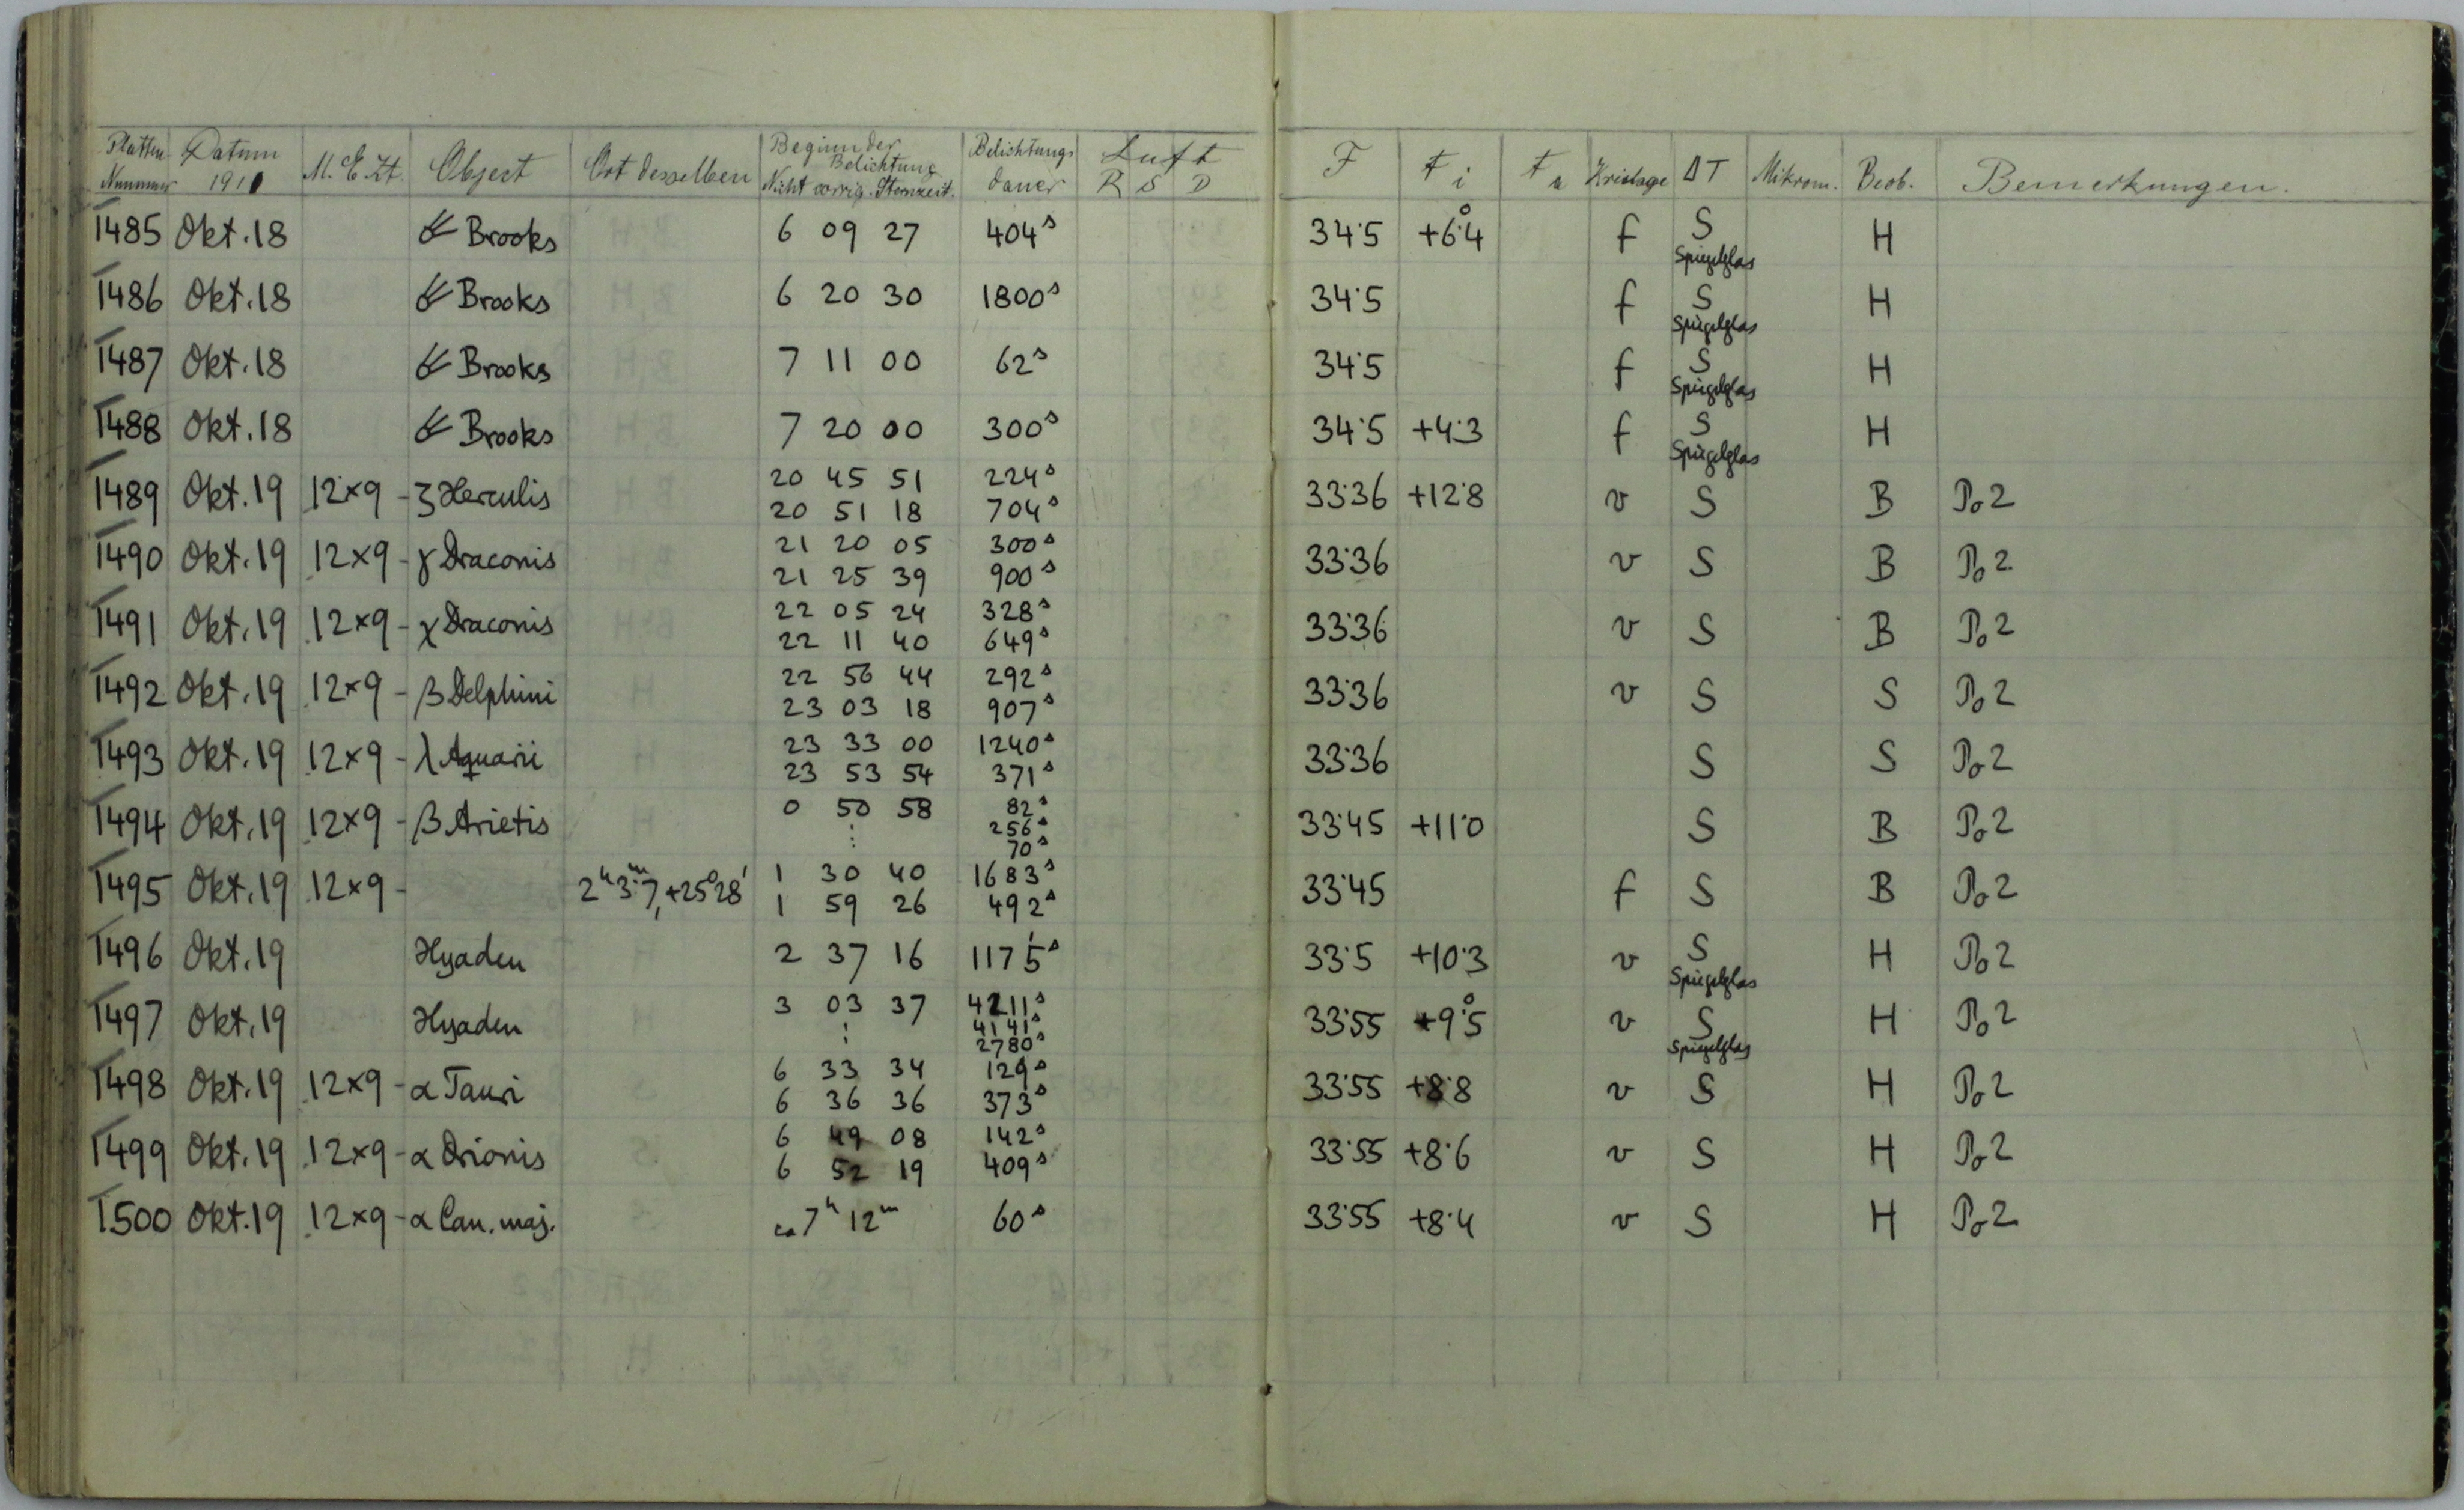 Platten Nummer Datum 1911 M. E. Zt. Object Ort desselben Beginn der Belichtung Nicht corrig. Sternzeit. Belichtungs dauer Luft R S D F t i t a Kreislage ΔT Mikrom. Beob. Bemerkungen.
1485 Okt. 18 ☄ Brooks 6 09 27 404s 34·5 +6°·4 f S Spiegelglas H
1486 Okt. 18 ☄ Brooks 6 20 30 1800s 34·5 f S Spiegelglas H
1487 Okt. 18 ☄ Brooks 7 11 00 62s 34·5 f S Spiegelglas H
1488 Okt. 18 ☄ Brooks 7 20 00 300s 34·5 +4·3 f S Spiegelglas H
1489 Okt. 19 12×9 - ζ Herculis 20 45 51 224s 33·36 +12·8 v S B Po 2
20 51 18 704s
1490 Okt. 19 12×9 - γ Draconis 21 20 05 300s 33·36 v S B Po 2
21 25 39 900s
1491 Okt. 19 12×9 - χ Draconis 22 05 24 328s 33·36 v S B Po 2
22 11 40 649s
1492 Okt. 19 12×9 - β Delphini 22 56 44 292s 33·36 v S S Po 2
23 03 18 907s
1493 Okt. 19 12×9 - λ Aquarii 23 33 00 1240s 33·36 S S Po 2
23 53 54 371s
1494 Okt. 19 12×9 - β Arietis 0 50 58 82s 33·45 +11·0 S B Po 2
⋮ 256s
70s
1495 Okt. 19 12×9 - 2h 3m·7, +25° 28' 1 30 40 1683s 33·45 f S B Po 2
1 59 26 492s
1496 Okt. 19 Hyaden 2 37 16 1175s 33·5 +10·3 v S Spiegelglas H Po 2
1497 Okt. 19 Hyaden 3 03 37 4211s 33·55 +9°·5 v S Spiegelglas H Po 2
⋮ 4141s
2780s
1498 Okt. 19 12×9 - α Tauri 6 33 34 129s 33·55 +8·8 v S H Po 2
6 36 36 373s
1499 Okt. 19 12×9 - α Orionis 6 49 08 142s 33·55 +8·6 v S H Po 2
6 52 19 409s
1500 Okt. 19 12×9 - α Can. maj. ca 7h 12m 60s 33·55 +8·4 v S H Po 2